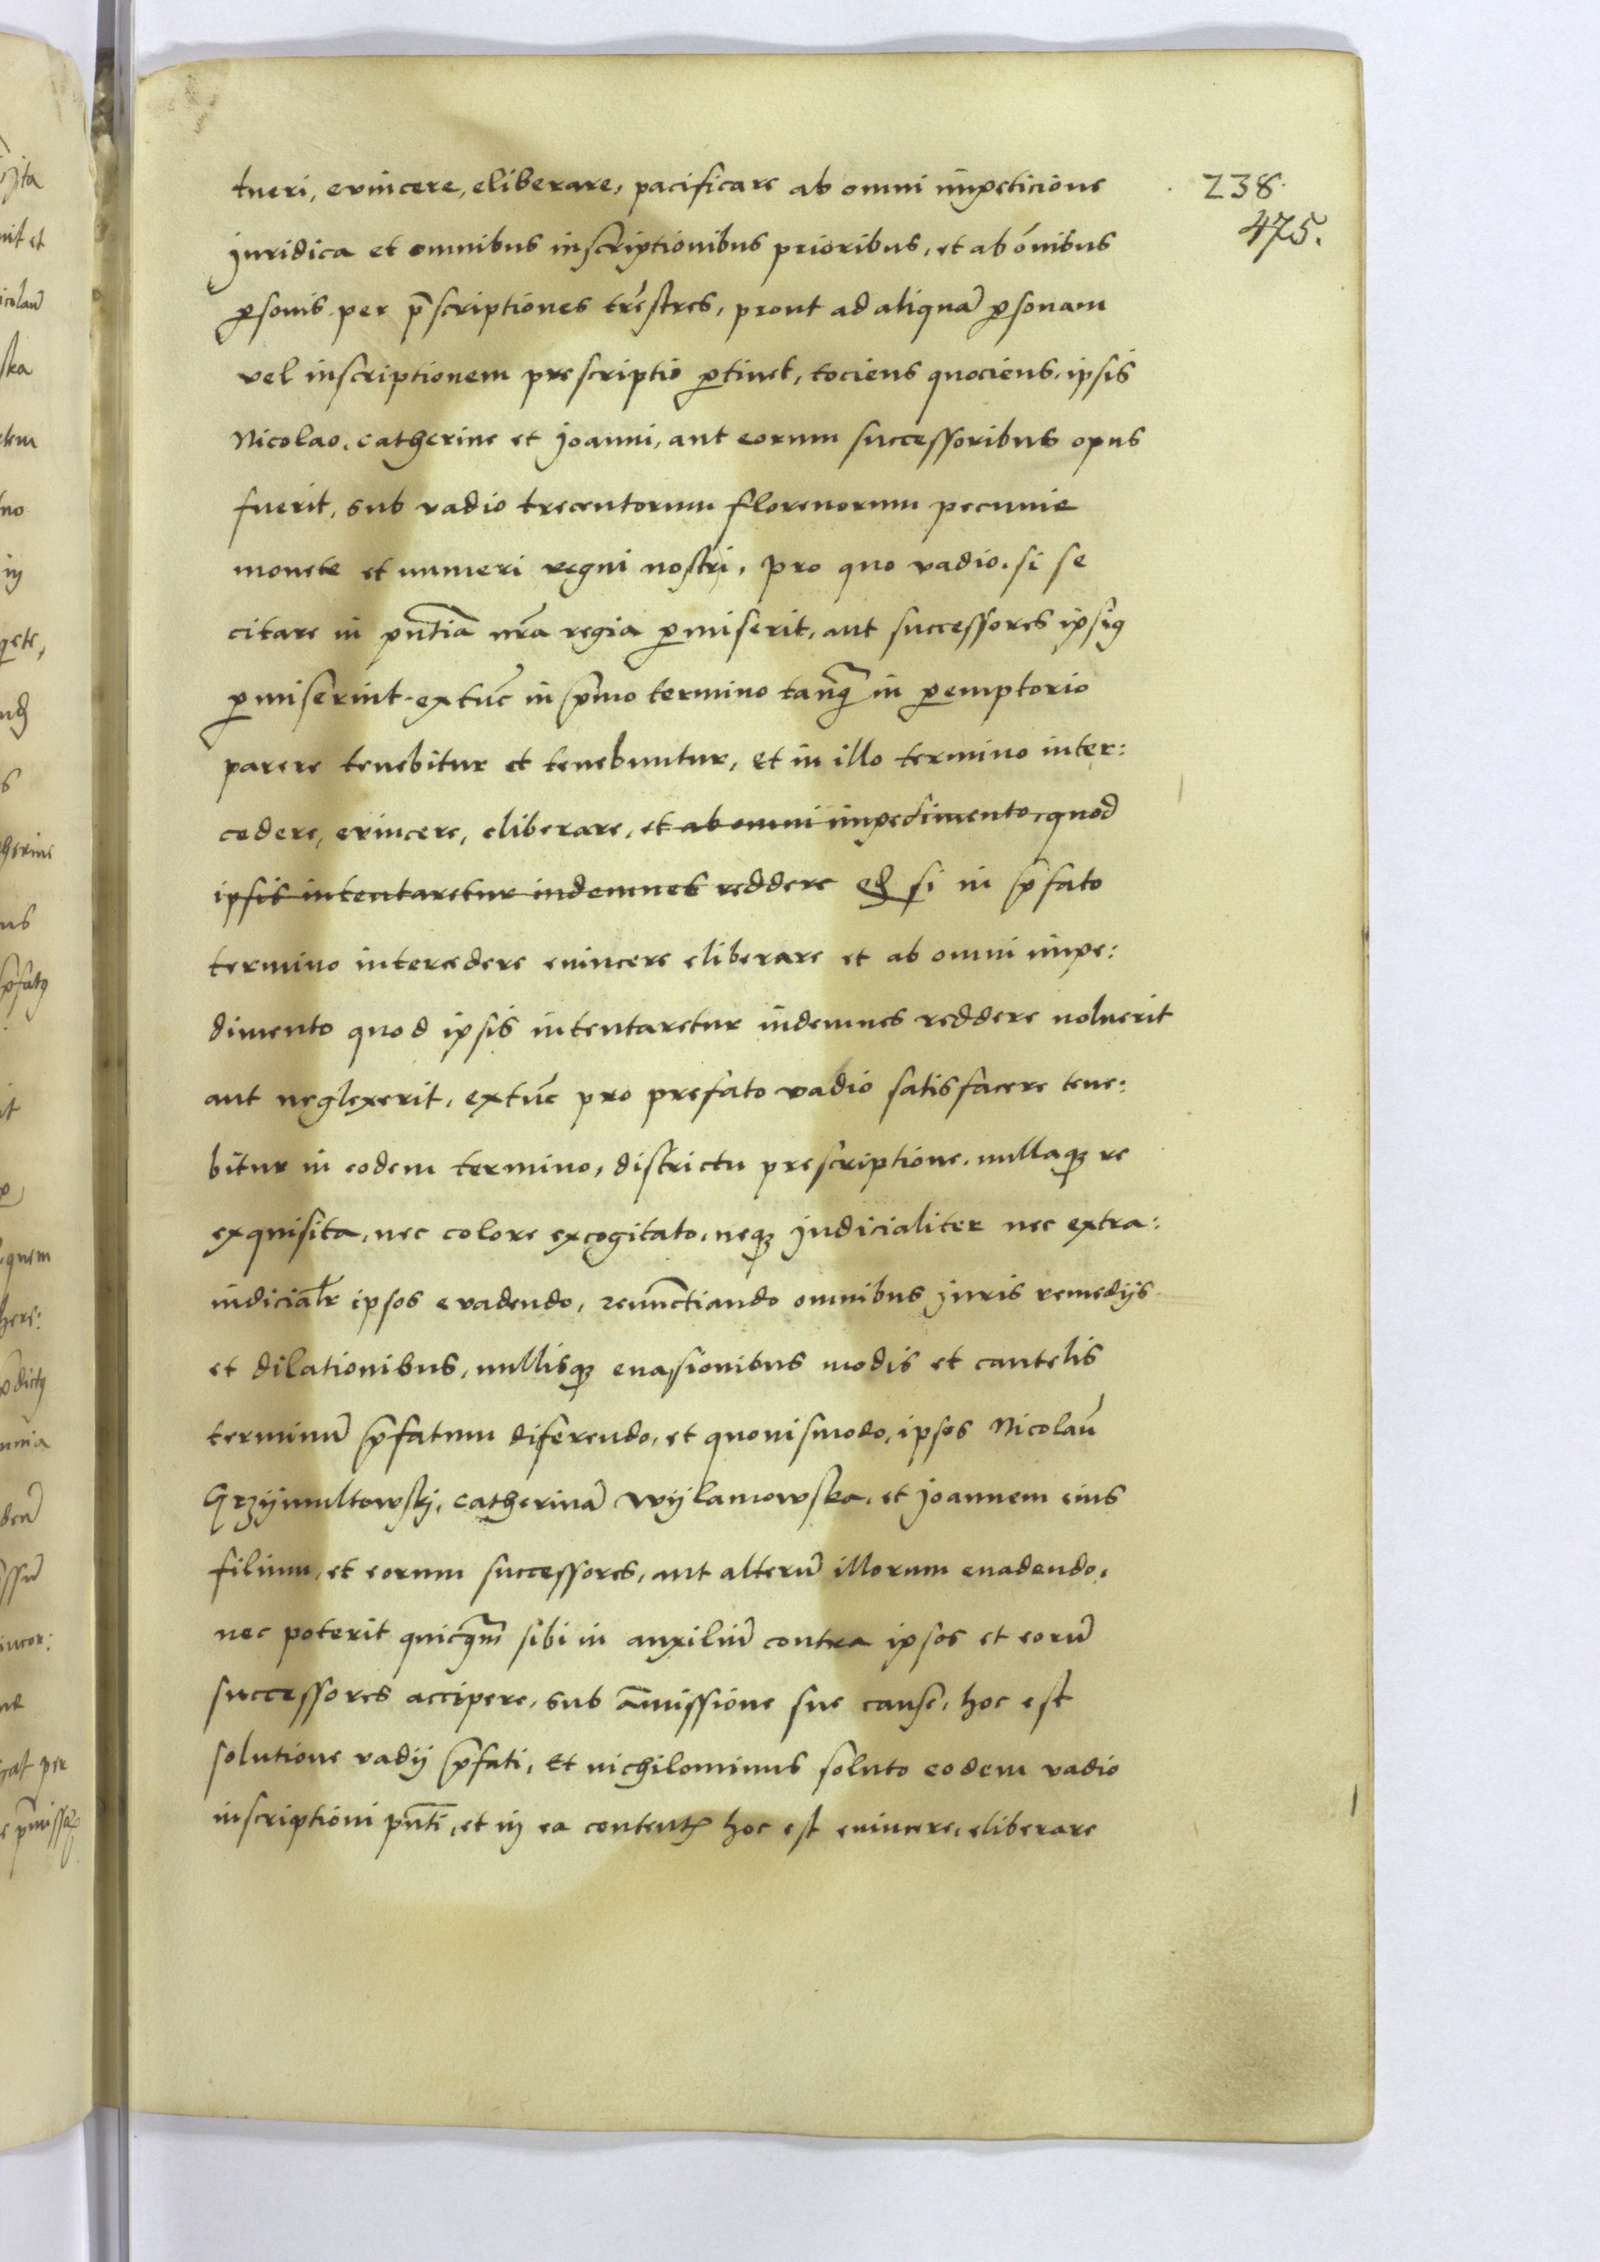 238.
475.
tueri, evincere, eliberare, pacificare ab omni impeticione
juridica et omnibus inscriptionibus prioribus, et ab o͞nibus
ꝑsonis per p̄scriptiones trēstres, prout ad aliquā ꝑsonam
vel inscriptionem prescriptio ꝑtinet, tociens quociens ipsis
Nicolao, catherine et joanni, aut eorum successoribus opus
fuerit, sub vadio trecentorum florenorum pecunie
monete et numeri regni nostri, pro quo vadio, si se
citare in pn̄tia nr̄a regia ꝑmiserit, aut successores ipsiꝰ
ꝑmiserint, extūc in p̄mo termino tanq̄ in ꝑemptorio
parere tenebitur et tenebuntur, et in illo termino inter:
cedere, evincere, eliberare, et ab omni impedimento, quod
ipsis intentaretur indemnes reddere Qd si in p̄fato
termino intercedere evincere eliberare et ab omni impe:
dimento quod ipsis intentaretur indemnes reddere noluerit
aut neglexerit, extūc pro prefato vadio satisfacere tene:
bitur in eodem termino, districtu prescriptione, nullaqꝫ re
exquisita, nec colore excogitato, neqꝫ judicialiter nec extra:
iudicialr̄ ipsos evadendo, renūctiando omnibus juris remedijs
et dilationibus, nullisqꝫ euasionibus modis et cautelis
terminū p̄fatum diferendo, et quouismodo, ipsos Nicolaū
Grzÿmultowskj, catherinā Wÿlamowska, et joannem eius
filium, et eorum successores, aut alterū illorum euadendo,
nec poterit quicq̄m sibi in auxiliū contra ipsos et eorū
successores accipere, sub āmissione sue cause, hoc est
solutione vadij p̄fati, Et nichilominus soluto eodem vadio
inscriptioni pn̄ti, et in ea contentꝭ hoc est evincere, eliberare